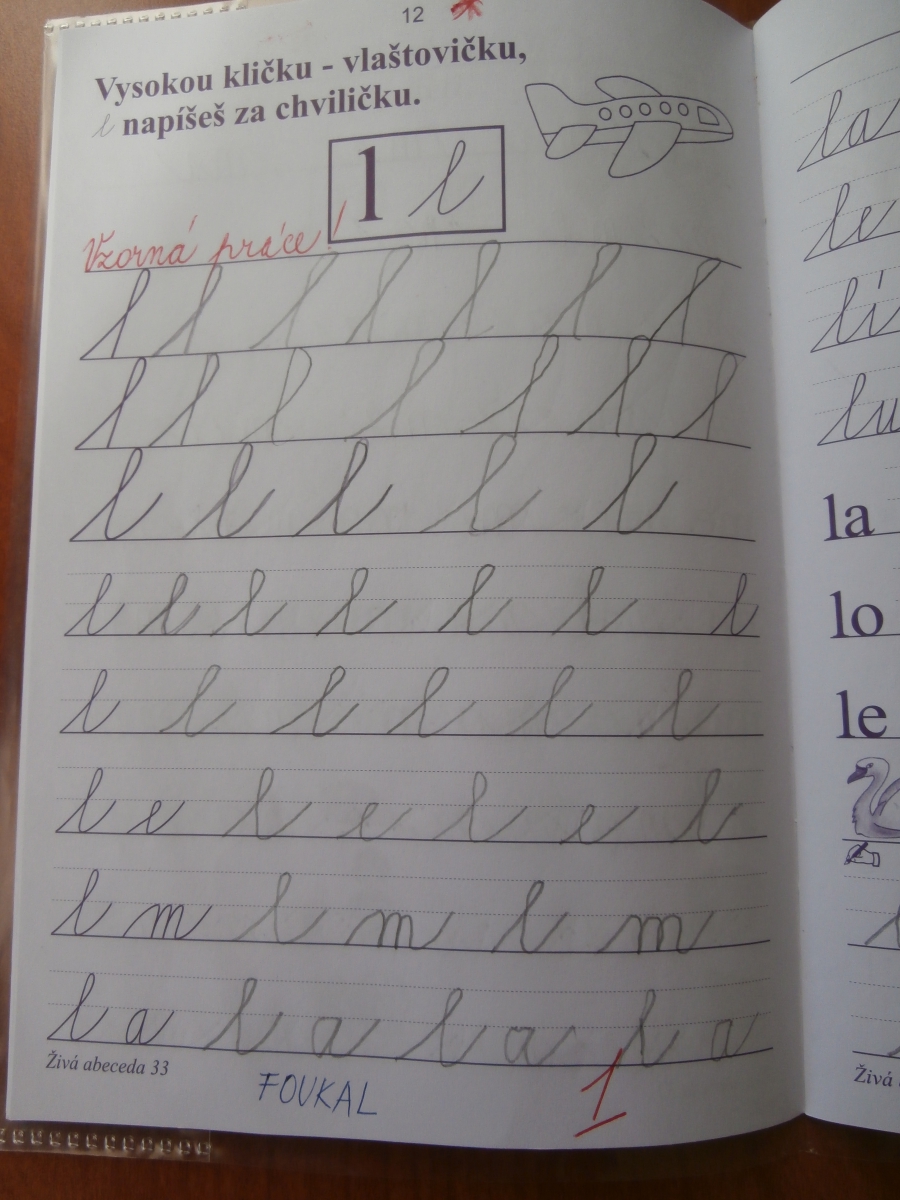 12
Vysokou kličku - vlaštovičku,
l napíšeš za chviličku.
l l
Vzorná práce!
l l l l l l l
l l l l l l l
l l l l l
l l l l l l l
l l l l l l
l e l e l e l
l m l m l m
l a l a l a l a
Živá abeceda 33
FOUKAL
1
la
le
lí
lu
la
lo
le
Živá